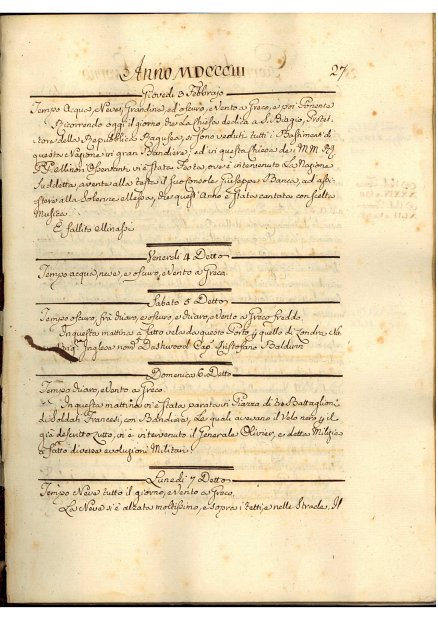 Anno MDCCCIII
27
Giovedi 3 Febbrajo
Tempo Acqua, Neve, Grandine, ed oscuro, Vento a Greco, e poi Ponente
Ricorrendo oggi il giorno che La chiesa dedica a S. Biagio, Protet-
tore della Repubblica Ragusea, si sono veduti tutti i Bastimenti di
questa Nazione in gran Bandiera, ed in questa chiesa de' M.M. R.R.
P.P. vi è stata Festa, ove è intervenuto La Nazione
Suddetta, avente alla testa il suo Console Giuseppe Banca, ad assi-
stere alla Solenne Messa, che quest' Anno è stata cantata con scelta
Musica.
È fallito
Venerdi 4 Detto
Tempo acqua, neve, e oscuro, e Vento a Greco.
Sabato 5 Detto
Tempo oscuro, frà chiaro, e oscuro, e chiaro, e Vento a Greco freddo
In questa mattina è fatto vela da questo Porto p quello di Londra, La
Inglesa nom.a Dashwood Cap. Cristofano Baldwin
Domenica 6. Detto
Tempo chiaro, e Vento a Greco
In questa mattina vi è stata parata in Piazza di Battaglioni
di Soldati Francesi, con Bandiera, Le quali avevano il Velo nero p il
già descritto Lutto, vi è intervenuto il Generale Olivier, e detta Milizia
a fatto diverse evoluzioni Militari
Lunedi 7 Detto
Tempo Neve tutto il giorno, e Vento a Greco.
La Neve si è alzata moltissimo, e sopra i tetti, e nelle Strade. Il